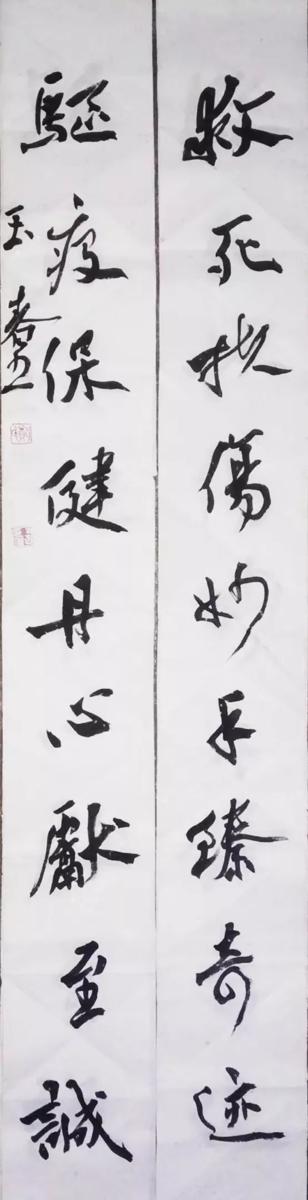 救死扶傷妙手臻奇迹
驅疫保健丹心獻至誠
玉春